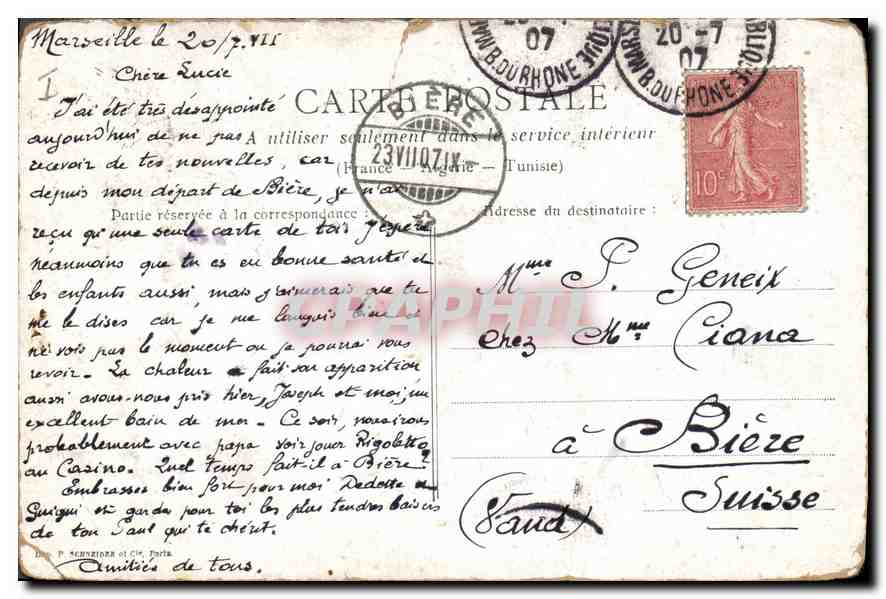 Marseille le 20/7.VII
Chère Lucie
J'ai été très désappointé
aujourd'hui de ne pas
recevoir de tes nouvelles, car
depuis mon départ de Bière, je n'ai
reçu qu'une seule carte de toi. J'espère
néanmoins que tu es en bonne santé et
les enfants aussi, mais j'aimerais que tu
me le dises car je me languis bien et
ne vois pas le moment où je pourrai vous
revoir. La chaleur fait son apparition
aussi avons-nous pris hier, Joseph et moi, un
excellent bain de mer. Ce soir, nous irons
probablement avec papa voir jouer Rigoletto
au Casino. Quel temps fait-il à Bière?
Embrasses bien fort pour moi Dedette et
Guigui et gardes pour toi les plus tendres baisers
de ton Paul qui te chérit.
Amitiés de tous.
I
CARTE POSTALE
A utiliser seulement dans le service intérieur
(France - Algérie - Tunisie)
Partie réservée à la correspondance:
Adresse du destinataire:
BIÈRE
23 VII 07 IX
07
B. DU RHONE
20-7
07
B. DU RHONE
10c
Mme P. Geneix
chez Mme Ciana
à Bière
Suisse
(Vaud)
Imp. P. SCHNEIDER et Cie, Paris
CPAPHIL